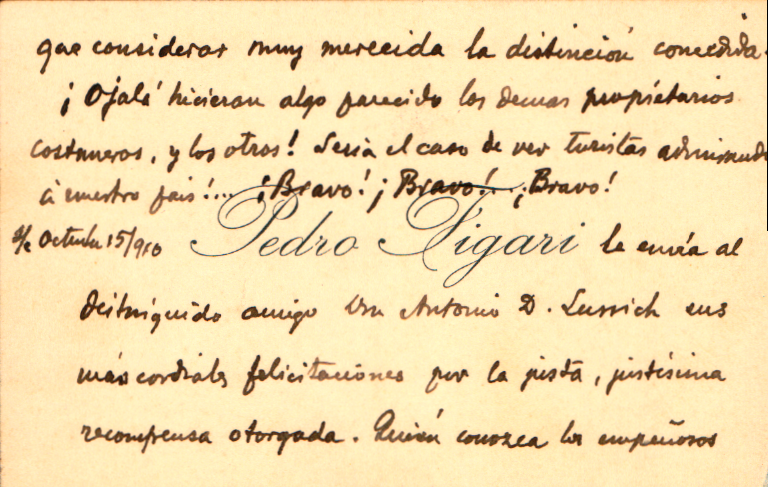 que considerar muy merecida la distinción concedida.
¡Ojalá hicieran algo parecido los demas propietarios
costaneros, y los otros! Seria el caso de ver turistas admirando
á nuestro pais!... ¡Bravo! ¡Bravo! ¡Bravo!
Octubre 15/910 Pedro Figari le envía al
distinguido amigo Don Antonio D. Lussich sus
más cordiales felicitaciones por la justa, justísima
recompensa otorgada. Quien conozca los empeñosos